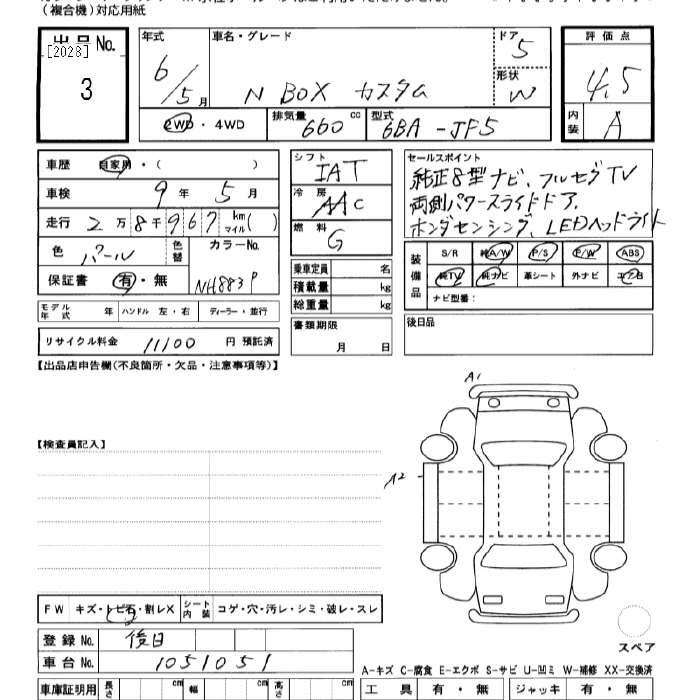 （複合機）対応用紙
出品No.
[2028]
3
年式 6/5月
車名・グレード N BOX カスタム
ドア 5
形状 W
2WD・4WD
排気量 660 cc
型式 6BA-JF5
評価点 4.5
内装 A
車歴 自家用・( )
車検 9年 5月
走行 2万8千967 km マイル( )
色 パール 色替
カラーNo. NH883P
保証書 有・無
モデル年式 年 ハンドル 左・右 ディーラー・並行
リサイクル料金 11100 円 預託済
シフト IAT
冷房 AAC
燃料 G
乗車定員 名
積載量 kg
総重量 kg
書類期限
月 日
セールスポイント
純正8型ナビ、フルセグTV
両側パワースライドドア、
ホンダセンシング、LEDヘッドライト
装備品
S/R 純A/W P/S P/W ABS
純TV 純ナビ 革シート 外ナビ エアB
ナビ型番：
後日品
【出品店申告欄(不良箇所・欠品・注意事項等)】
A1
【検査員記入】
A2
FW キズ・トビ石・割レX
シート内装 コゲ・穴・汚レ・シミ・破レ・スレ
登録No. 後日
車台No. 1051051
スペア
A-キズ C-腐食 E-エクボ S-サビ U-凹ミ W-補修 XX-交換済
車庫証明用 長さ cm 幅 cm 高さ cm
工具 有・無 ジャッキ 有・無